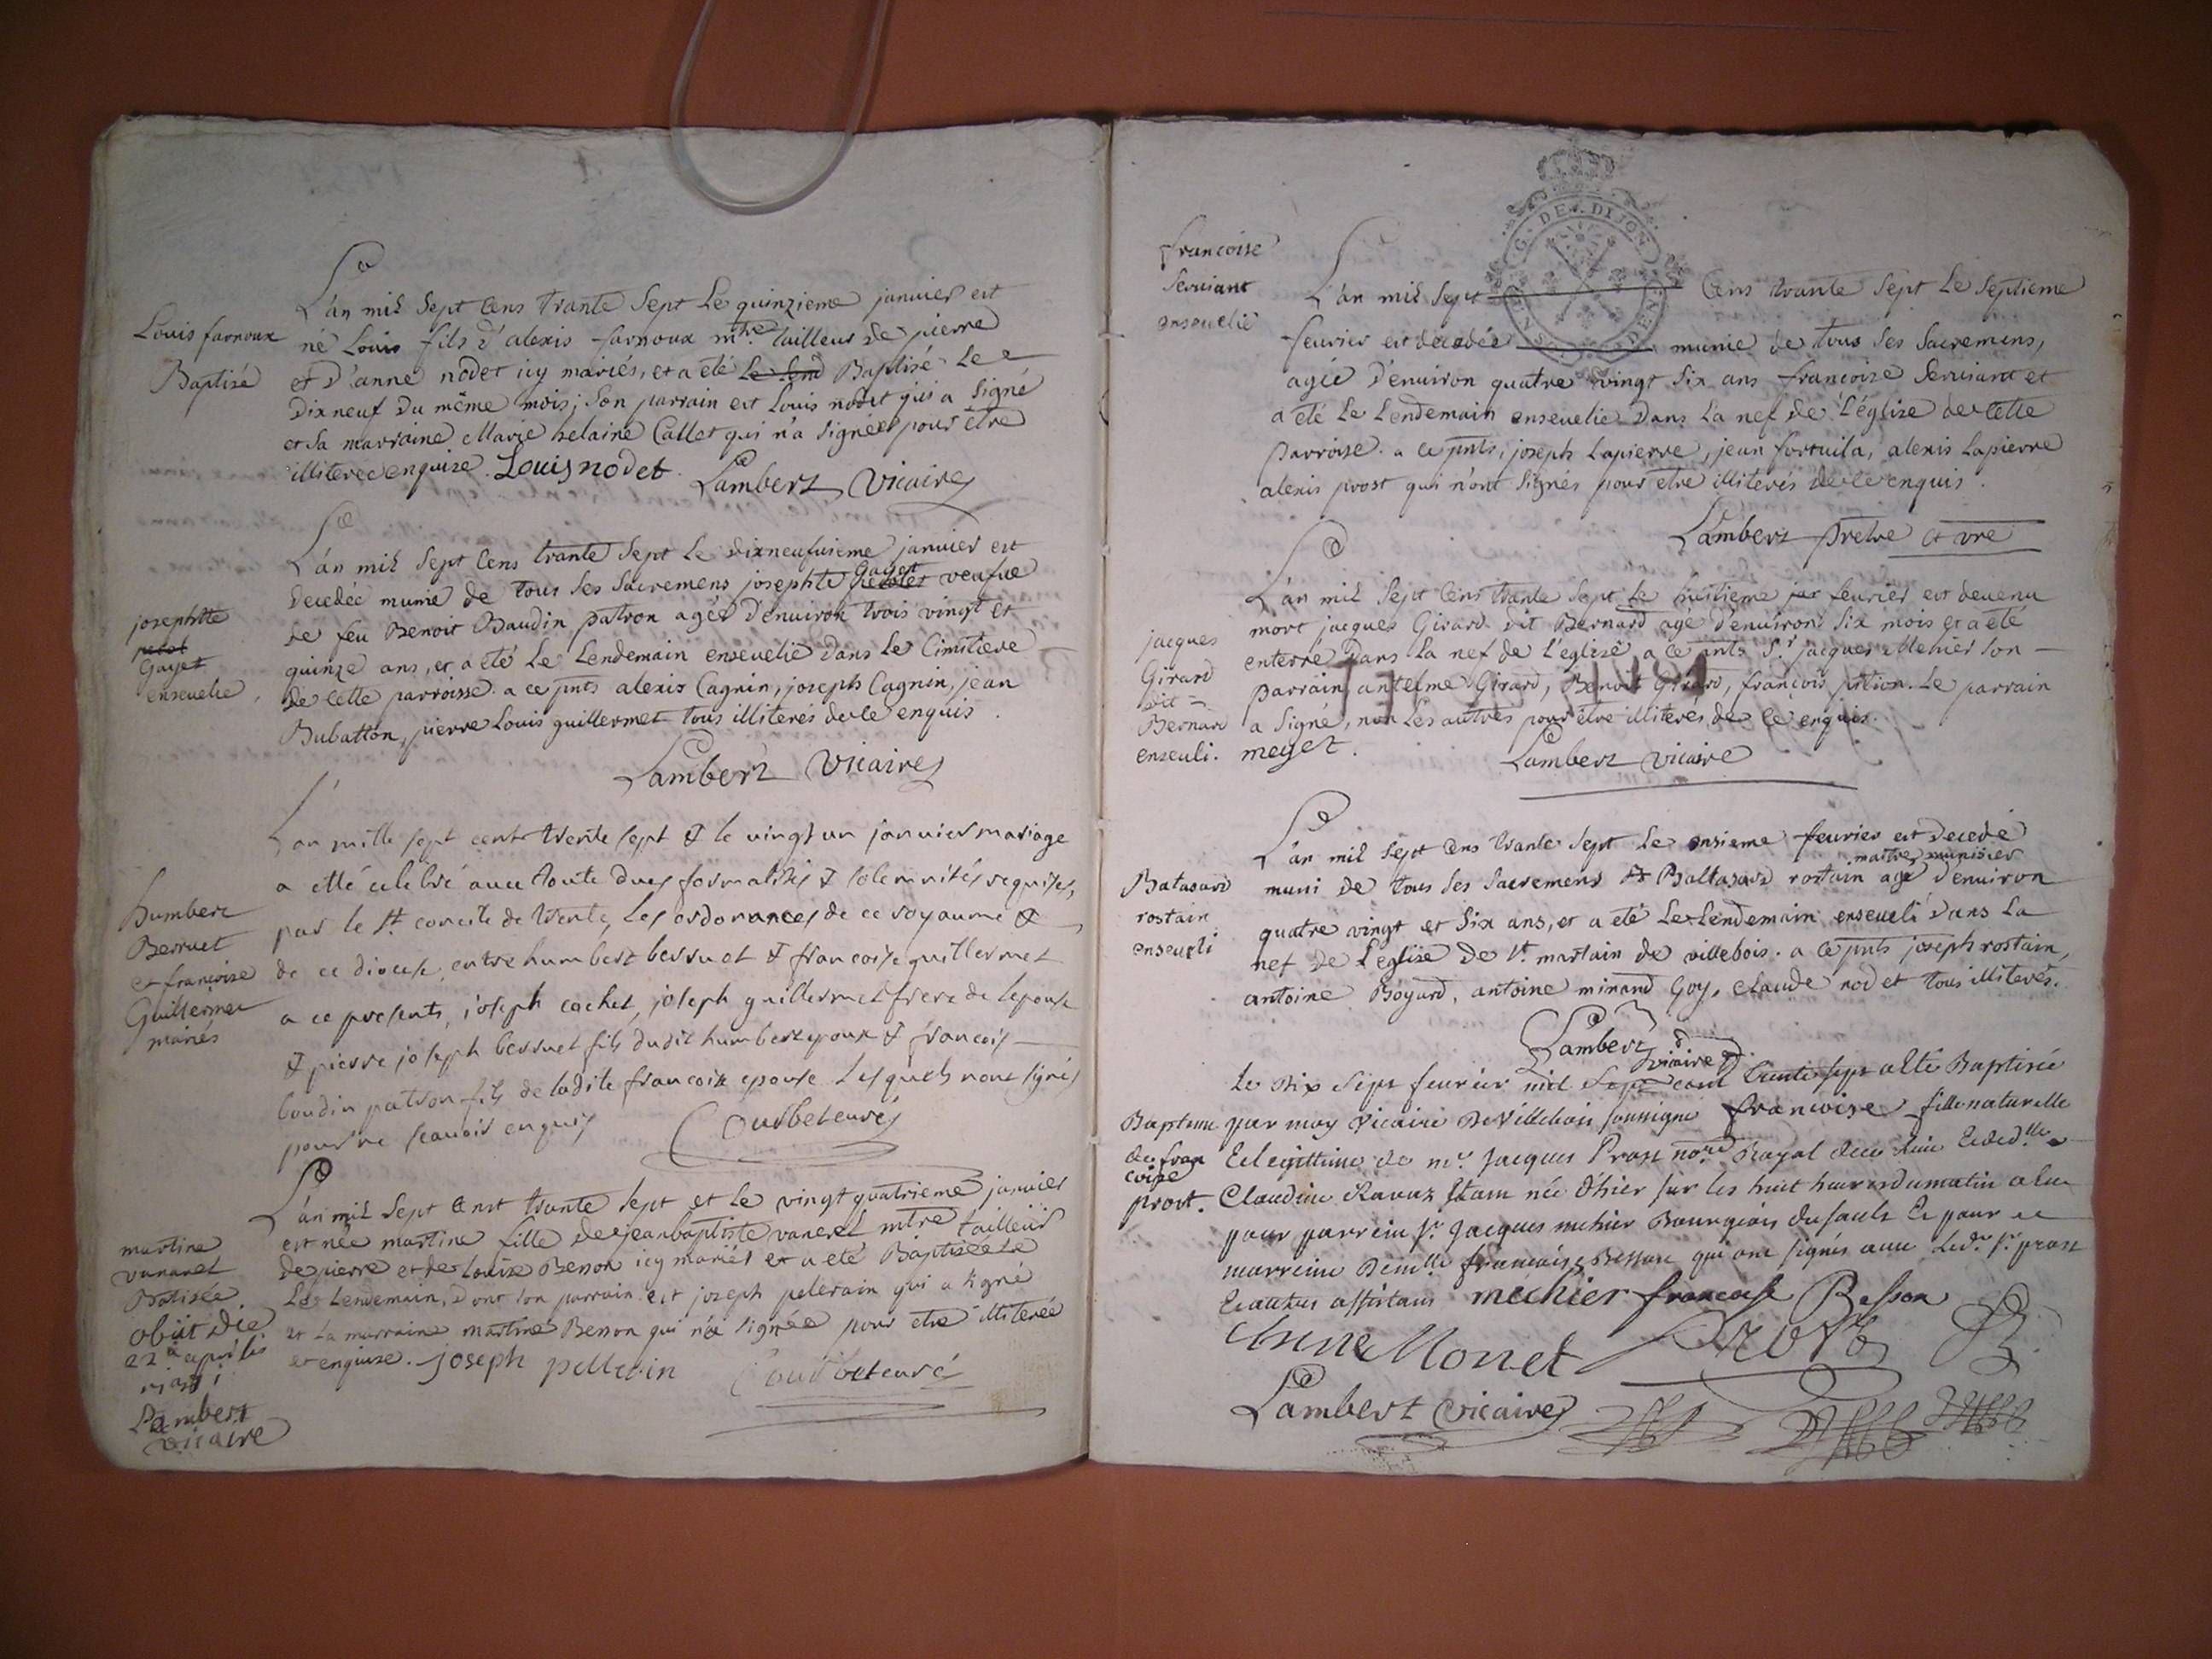 Louis farnoux
Baptisé
L'an mil sept cens trante sept Le quinzieme janvier est
né Louis fils d'alexis farnoux mtre tailleur de pierre
et d'anne nodet icy mariés, et a été Le Lend Baptisé Le
Dixneuf du même mois; son parrain est Louis nodet qui a signé
et sa marraine Marie helaine Callet qui n'a signée pour être
illiteree enquise. Louis nodet. Lambert Vicaire
josephte
Gayet
ensevelie
L'an mil sept cens trante sept Le dixneufvieme janvier est
Decedée munie de tous ses sacremens josephte Gayet veufve
de feu Benoit Baudin patron agée d'environ trois vingt et
quinze ans, et a été Le Lendemain ensevelie dans Le Cimitiere
de cette parroisse. a ce pnts alexis Cagnin, joseph Cagnin, jean
Bubatton, pierre Louis guillermet tous illiterés de ce enquis.
Lambert Vicaire
humbert
Berruet
et francoise
Guillermet
mariés
L'an mille sept cent trente sept & le vingt un janvier mariage
a etté celebré avec toute dues formalités & solemnités requises,
par le st concile de trente, les ordonances de ce royaume &
de ce diocese, entre humbert berruet & francoise guillermet
a ce presents, joseph cochet, joseph guillermet frere de lepouse
& pierre joseph berruet fils dudit humbert epoux & francois
boudin patron fils de ladite francoise epouse lesquels nont signés
pour ne scavoir enquis Courbeteuré
martine
vanarel
Batisée
obiit die
22a aprilis
1737
Lambert
vicaire
L'an mil sept cent trante sept et Le vingtquatrieme janvier
est née martine fille de jeanbaptiste vanerel mtre tailleur
de pierre et de Louise Besson icy mariés et a eté Baptisée Le
Le Lendemain, Dont son parrain est joseph pelerain qui a signé
et La marraine martine Besson qui n'a signée pour etre illiterée
et enquise. joseph pellerin Courbeteuré
francoise
Serviant
ensevelie
G. DE DIJON
L'an mil sept Cens trante sept Le septieme
fevrier est decedée munie de tous ses sacremens,
agée d'environ quatre vingt six ans francoise Serviant et
a été Le Lendemain ensevelie Dans La nef de L'église de cette
parroise. a ce pnts, joseph Lapierre, jean fortuila, alexis Lapierre
alexis prost qui n'ont signés pour etre illiterés de ce enquis.
Lambert prêtre et vre
jacques
Girard
dit
Bernard
enseveli.
L'an mil sept Cens trante sept Le huitieme fevrier est devenu
mort jacques Girard dit Bernard agé d'environ six mois et a été
enterre Dans La nef de L'eglise a ce pnts Sr jacques Mehier son
parrain, antelme Girard, Benoit Girard, francois pition. Le parrain
a signé, non Les autres pour être illiterés de ce enquis.
meyet. Lambert vicaire
Batasard
rostain
enseveli
L'an mil sept Cens trante sept Le onsieme fevrier est decedé
maitre munisier
muni de tous ses sacremens Baltasard rostain agé d'environ
quatre vingt et six ans, et a eté Le Lendemain enseveli dans La
nef de L'eglise de st. martain de villebois. a ce pnts joseph rostain,
antoine Boyard, antoine minand Goy, claude nodet tous illiterés.
Lambert
vicaire
Bapteme
de fran
coise
prost.
Le Dix Sept fevrier mil Sept cent trente sept a eté Baptisée
par moy vicaire De Villebois soussigné francoise fille naturelle
Et legittime de mr. Jacques Prost nore Royal Et de dlle
Claudine Ravaz Etant née d'hier sur les huit heures du matin a eu
pour parrein sr. Jacques mehier Bourgeois du sault Et pour
marreine Demlle francoise Besson qui ont signés avec Ledr. sr. prost
Et autres assistans mechier francoise Besson
Anne Monet Prost
Lambert vicaire